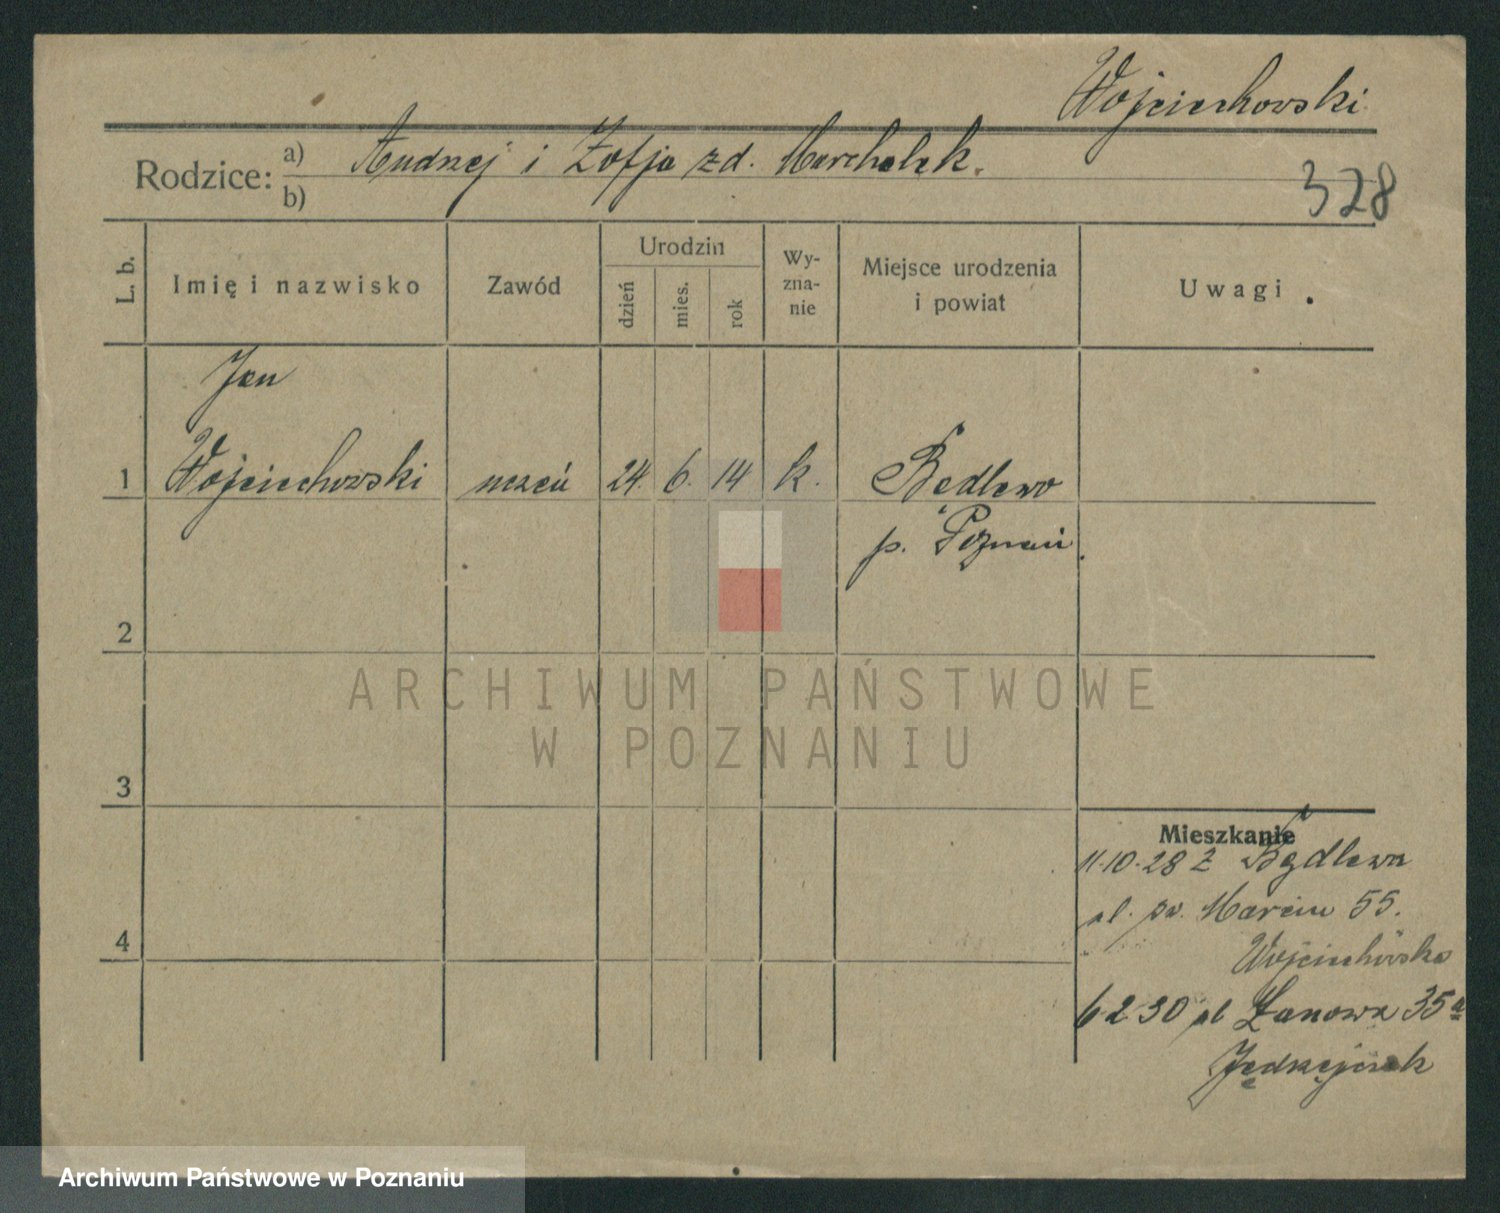 Wojciechowski
Rodzice: a) Andrzej i Zofja zd. Marchalek.
b)
328
L. b.
Imię i nazwisko
Zawód
Urodzin
dzień
mies.
rok
Wy-
zna-
nie
Miejsce urodzenia
i powiat
Uwagi
Jan
1 Wojciechowski uczeń 24. 6. 14 k. Będlewo
p. Poznań.
2
ARCHIWUM PAŃSTWOWE
W POZNANIU
3
Mieszkanie
11.10.28 z Będlewa
ul. św. Marcin 55.
4
Wojciechowska
6 2 30 ul Łanowa 35a
Archiwum Państwowe w Poznaniu